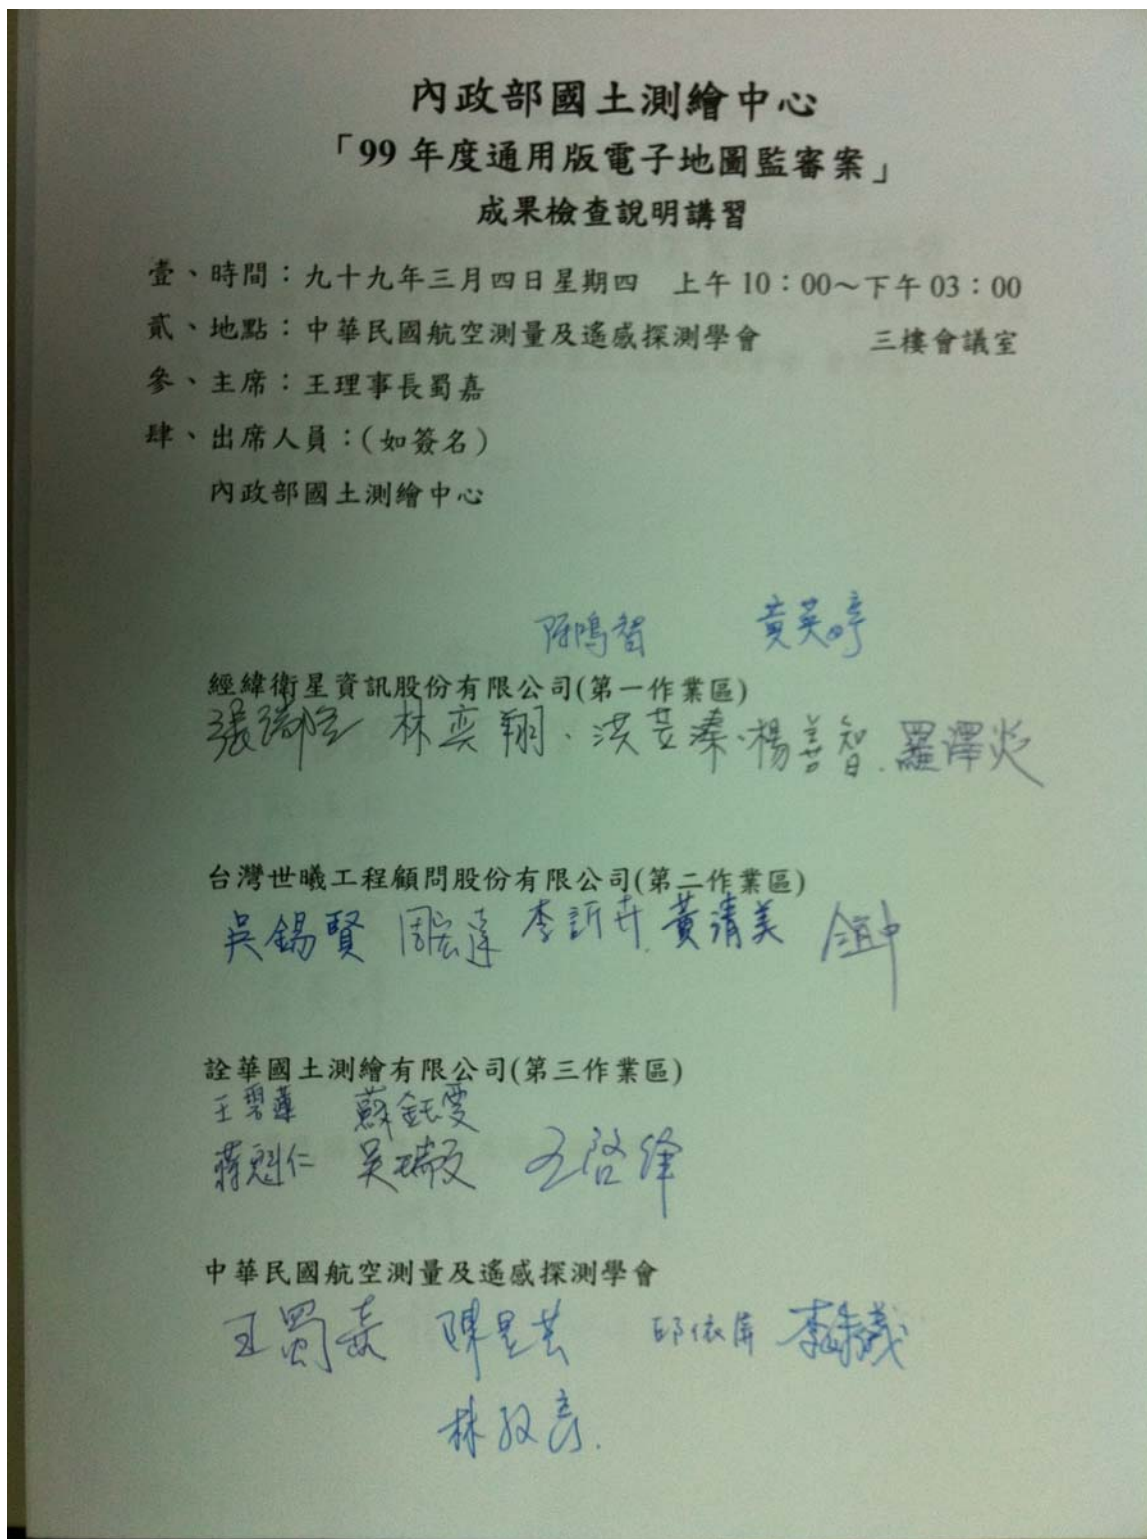 內政部國土測繪中心
「99 年度通用版電子地圖監審案」
成果檢查說明講習
壹、時間：九十九年三月四日星期四 上午 10：00～下午 03：00
貳、地點：中華民國航空測量及遙感探測學會 三樓會議室
參、主席：王理事長蜀嘉
肆、出席人員：(如簽名)
內政部國土測繪中心
陳鳴智 黃英婷
經緯衛星資訊股份有限公司(第一作業區)
林奕翔、洪芸 楊善智 羅澤
台灣世曦工程顧問股份有限公司(第二作業區)
吳錫賢 周宏達 李訢卉 黃清美
詮華國土測繪有限公司(第三作業區)
王碧蓮 蘇鈺雯
蔣魁仁 吳瑞 王啓
中華民國航空測量及遙感探測學會
王蜀嘉 陳 邱依屏 李
林